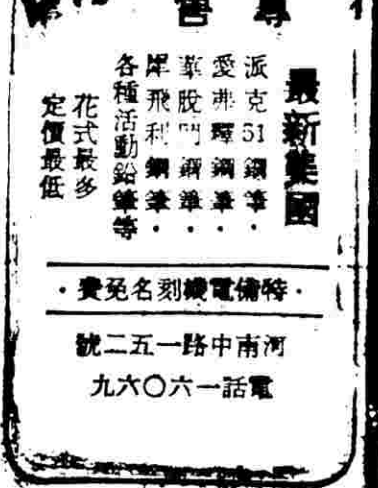 最新美國
派克51鋼筆·
愛弗釋鋼筆·
華脫門鋼筆·
犀飛利鋼筆·
各種活動鉛筆等
花式最多
定價最低
·特備電機刻名免費·
河南中路一五二號
電話一六〇六九